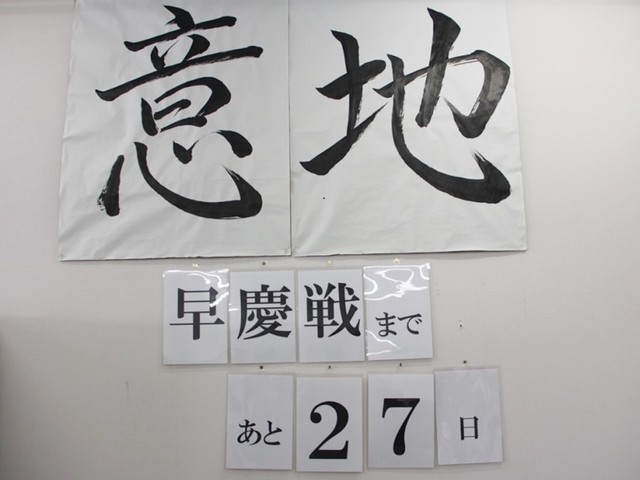 意地
早慶戦まで
あと27日